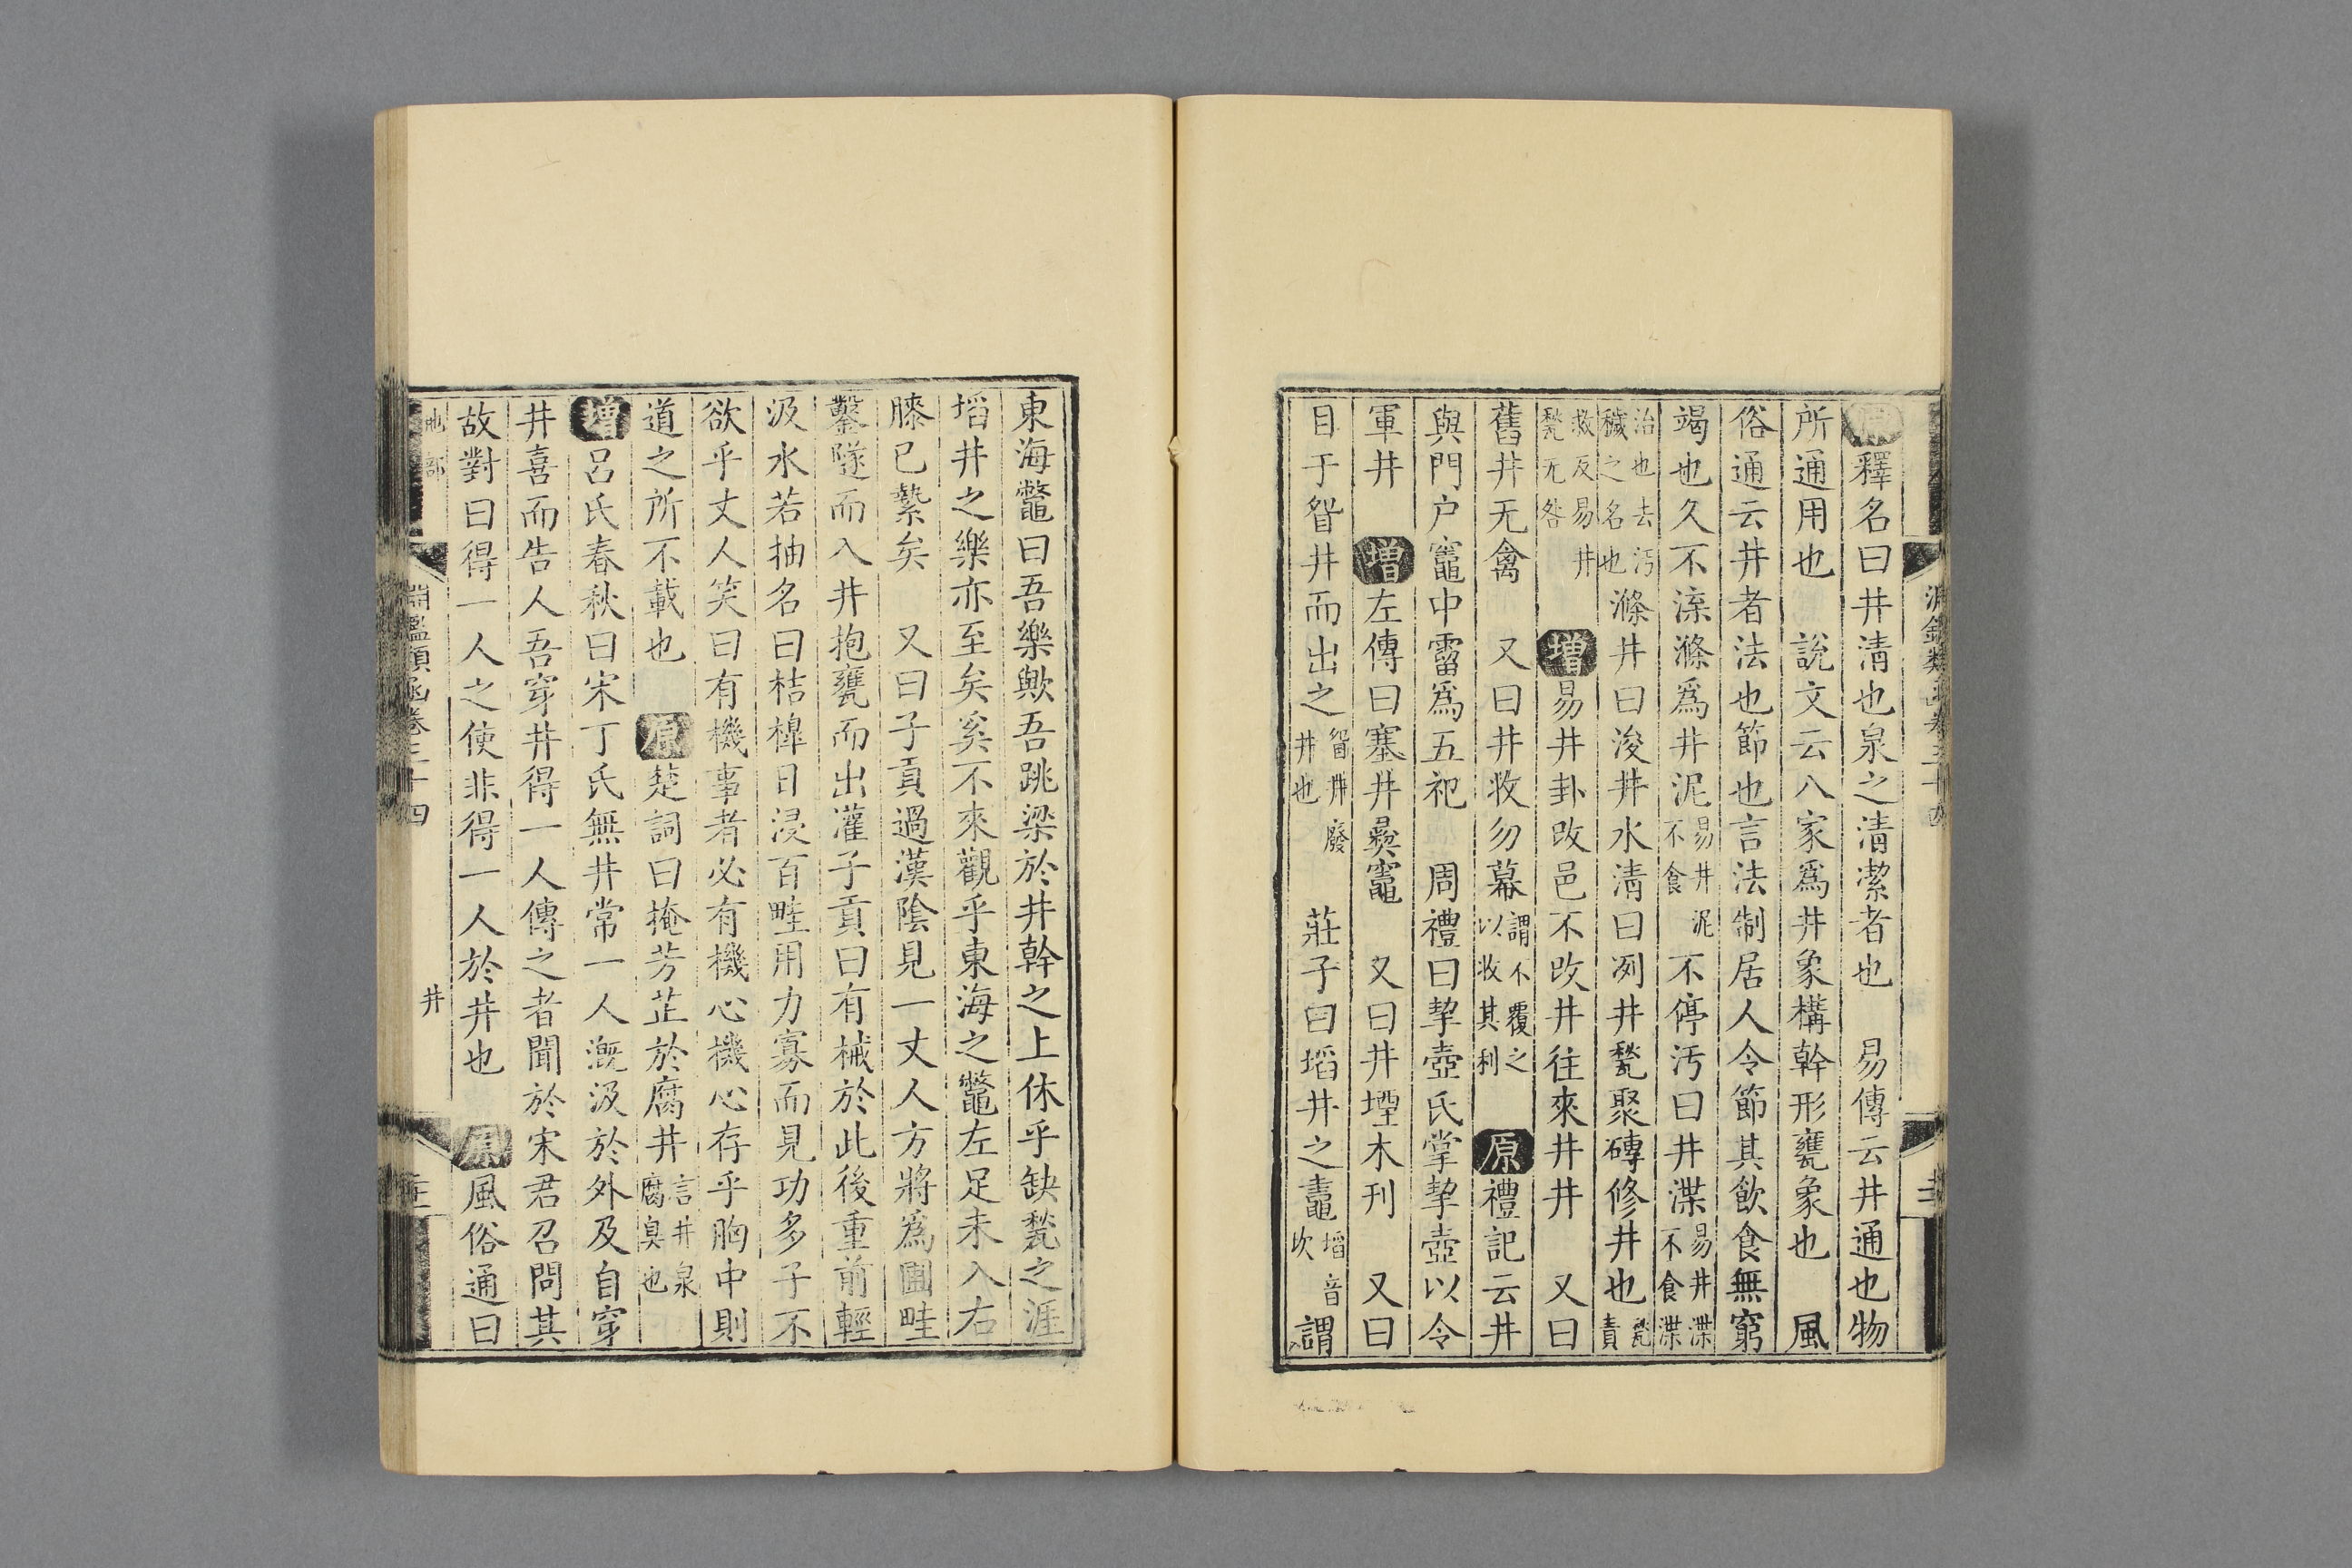 原釋名曰井清也泉之清潔者也　易傳云井通也物
所通用也　說文云八家爲井象構幹形甕象也　風
俗通云井者法也節也言法制居人令節其飲食無窮
竭也久不渫滌爲井泥易井泥不食不停汚曰井渫易井渫不食渫
治也去汚穢之名也滌井曰浚井水清曰冽井甃聚磚修井也甃責
救反易井甃无咎　增易井卦改邑不改井往來井井　又曰
舊井无禽　又曰井收勿幕謂不覆之以收其利　原禮記云井
與門户竈中霤爲五祀　周禮曰挈壺氏掌挈壺以令
軍井　增左傳曰塞井彛竈　又曰井堙木刋　又曰
目于眢井而出之眢井廢井也　莊子曰埳井之鼃埳音坎謂
東海鼈曰吾樂歟吾跳梁於井幹之上休乎缺甃之涯
埳井之樂亦至矣奚不來觀乎東海之鼈左足未入右
膝已縶矣　又曰子貢過漢陰見一丈人方將爲圃畦
鑿隧而入井抱甕而出灌子貢曰有械於此後重前輕
汲水若抽名曰桔槹日浸百畦用力寡而見功多子不
欲乎丈人笑曰有機事者必有機心機心存乎胸中則
道之所不載也　原楚詞曰掩芳芷於腐井言井泉腐臭也
增呂氏春秋曰宋丁氏無井常一人溉汲於外及自穿
井喜而告人吾穿井得一人傳之者聞於宋君召問其
故對曰得一人之使非得一人於井也　原風俗通曰
地部　淵鑑類函卷三十四　井